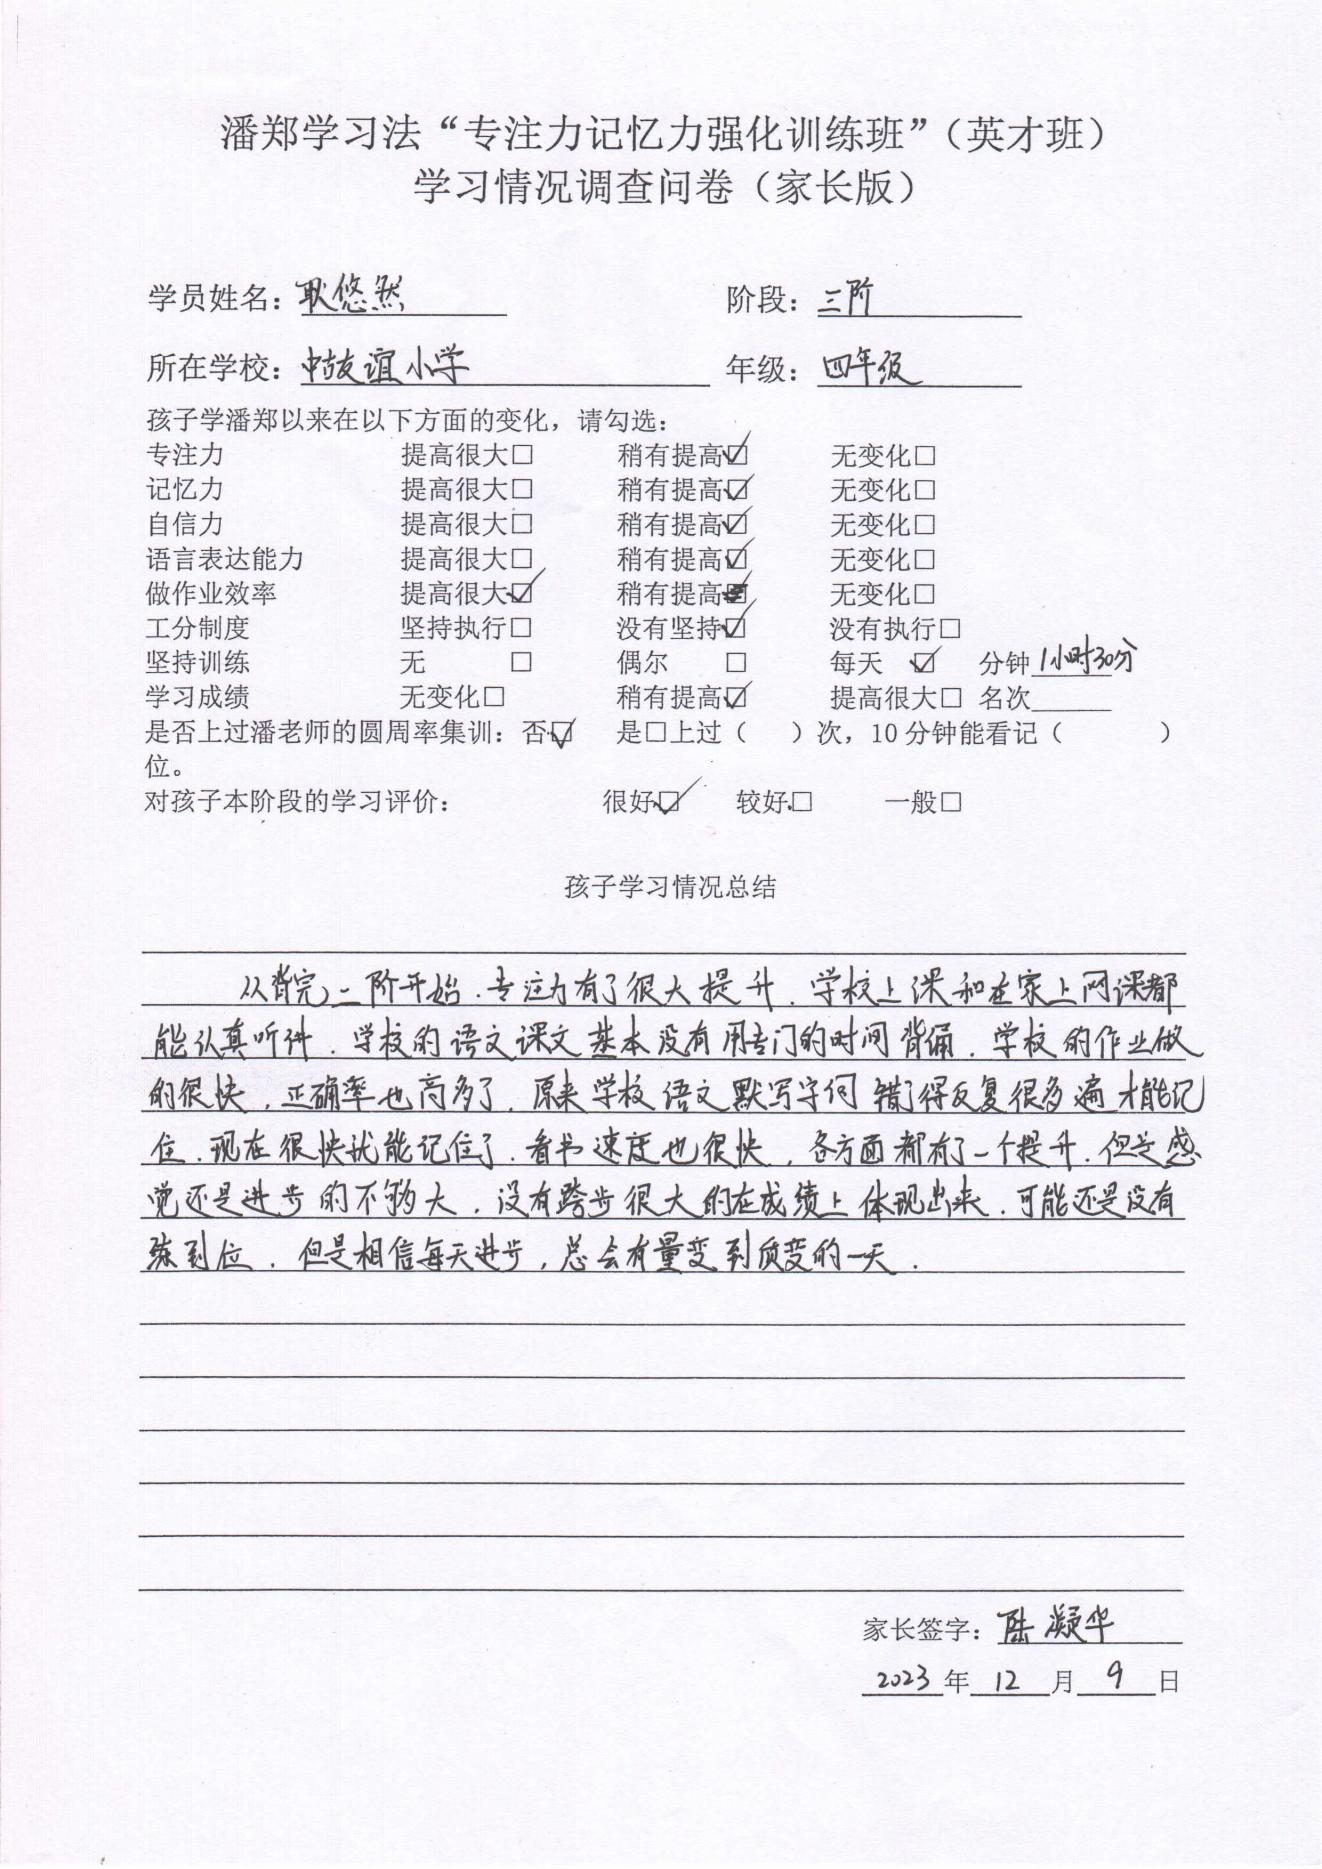 潘郑学习法“专注力记忆力强化训练班”（英才班）
学习情况调查问卷（家长版）
学员姓名：耿悠然 阶段：三阶
所在学校：中古友谊小学 年级：四年级
孩子学潘郑以来在以下方面的变化，请勾选：
专注力 提高很大□ 稍有提高☑ 无变化□
记忆力 提高很大□ 稍有提高☑ 无变化□
自信力 提高很大□ 稍有提高☑ 无变化□
语言表达能力 提高很大□ 稍有提高☑ 无变化□
做作业效率 提高很大☑ 稍有提高■ 无变化□
工分制度 坚持执行□ 没有坚持☑ 没有执行□
坚持训练 无 □ 偶尔 □ 每天 ☑ 分钟1小时30分
学习成绩 无变化□ 稍有提高☑ 提高很大□ 名次______
是否上过潘老师的圆周率集训：否☑ 是□上过（ ）次，10分钟能看记（ ）
位。
对孩子本阶段的学习评价： 很好☑ 较好□ 一般□
孩子学习情况总结
从背完二阶开始.专注力有了很大提升.学校上课和在家上网课都
能认真听讲.学校的语文课文基本没有用专门的时间背诵.学校的作业做
的很快，正确率也高多了.原来学校语文默写字词错了得反复很多遍才能记
住.现在很快就能记住了.看书速度也很快，各方面都有了一个提升.但是感
觉还是进步的不够大，没有跨步很大的在成绩上体现出来.可能还是没有
练到位.但是相信每天进步，总会有量变到质变的一天.
家长签字：陆凝华
2023年12月9日